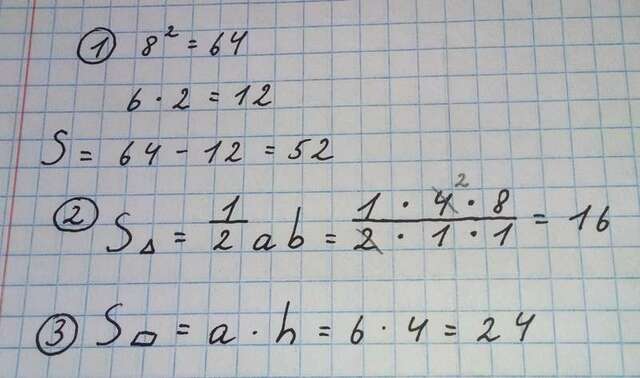 ① 8² = 64
6 · 2 = 12
S = 64 - 12 = 52
② S△ = 1/2 ab = (1 · 4² · 8)/(2 · 1 · 1) = 16
③ S▱ = a · h = 6 · 4 = 24